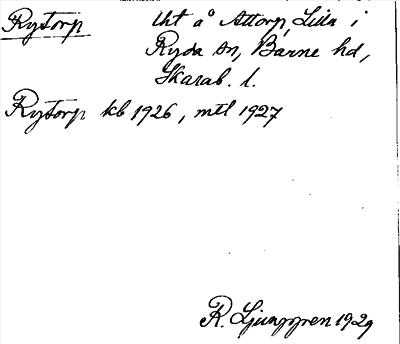 Rytorp lht å Attorp, Lilla i
Ryda sn, Barne hd,
Skarab. l.
Rytorp kb 1926, mtl 1927
R. Ljunggren 1929